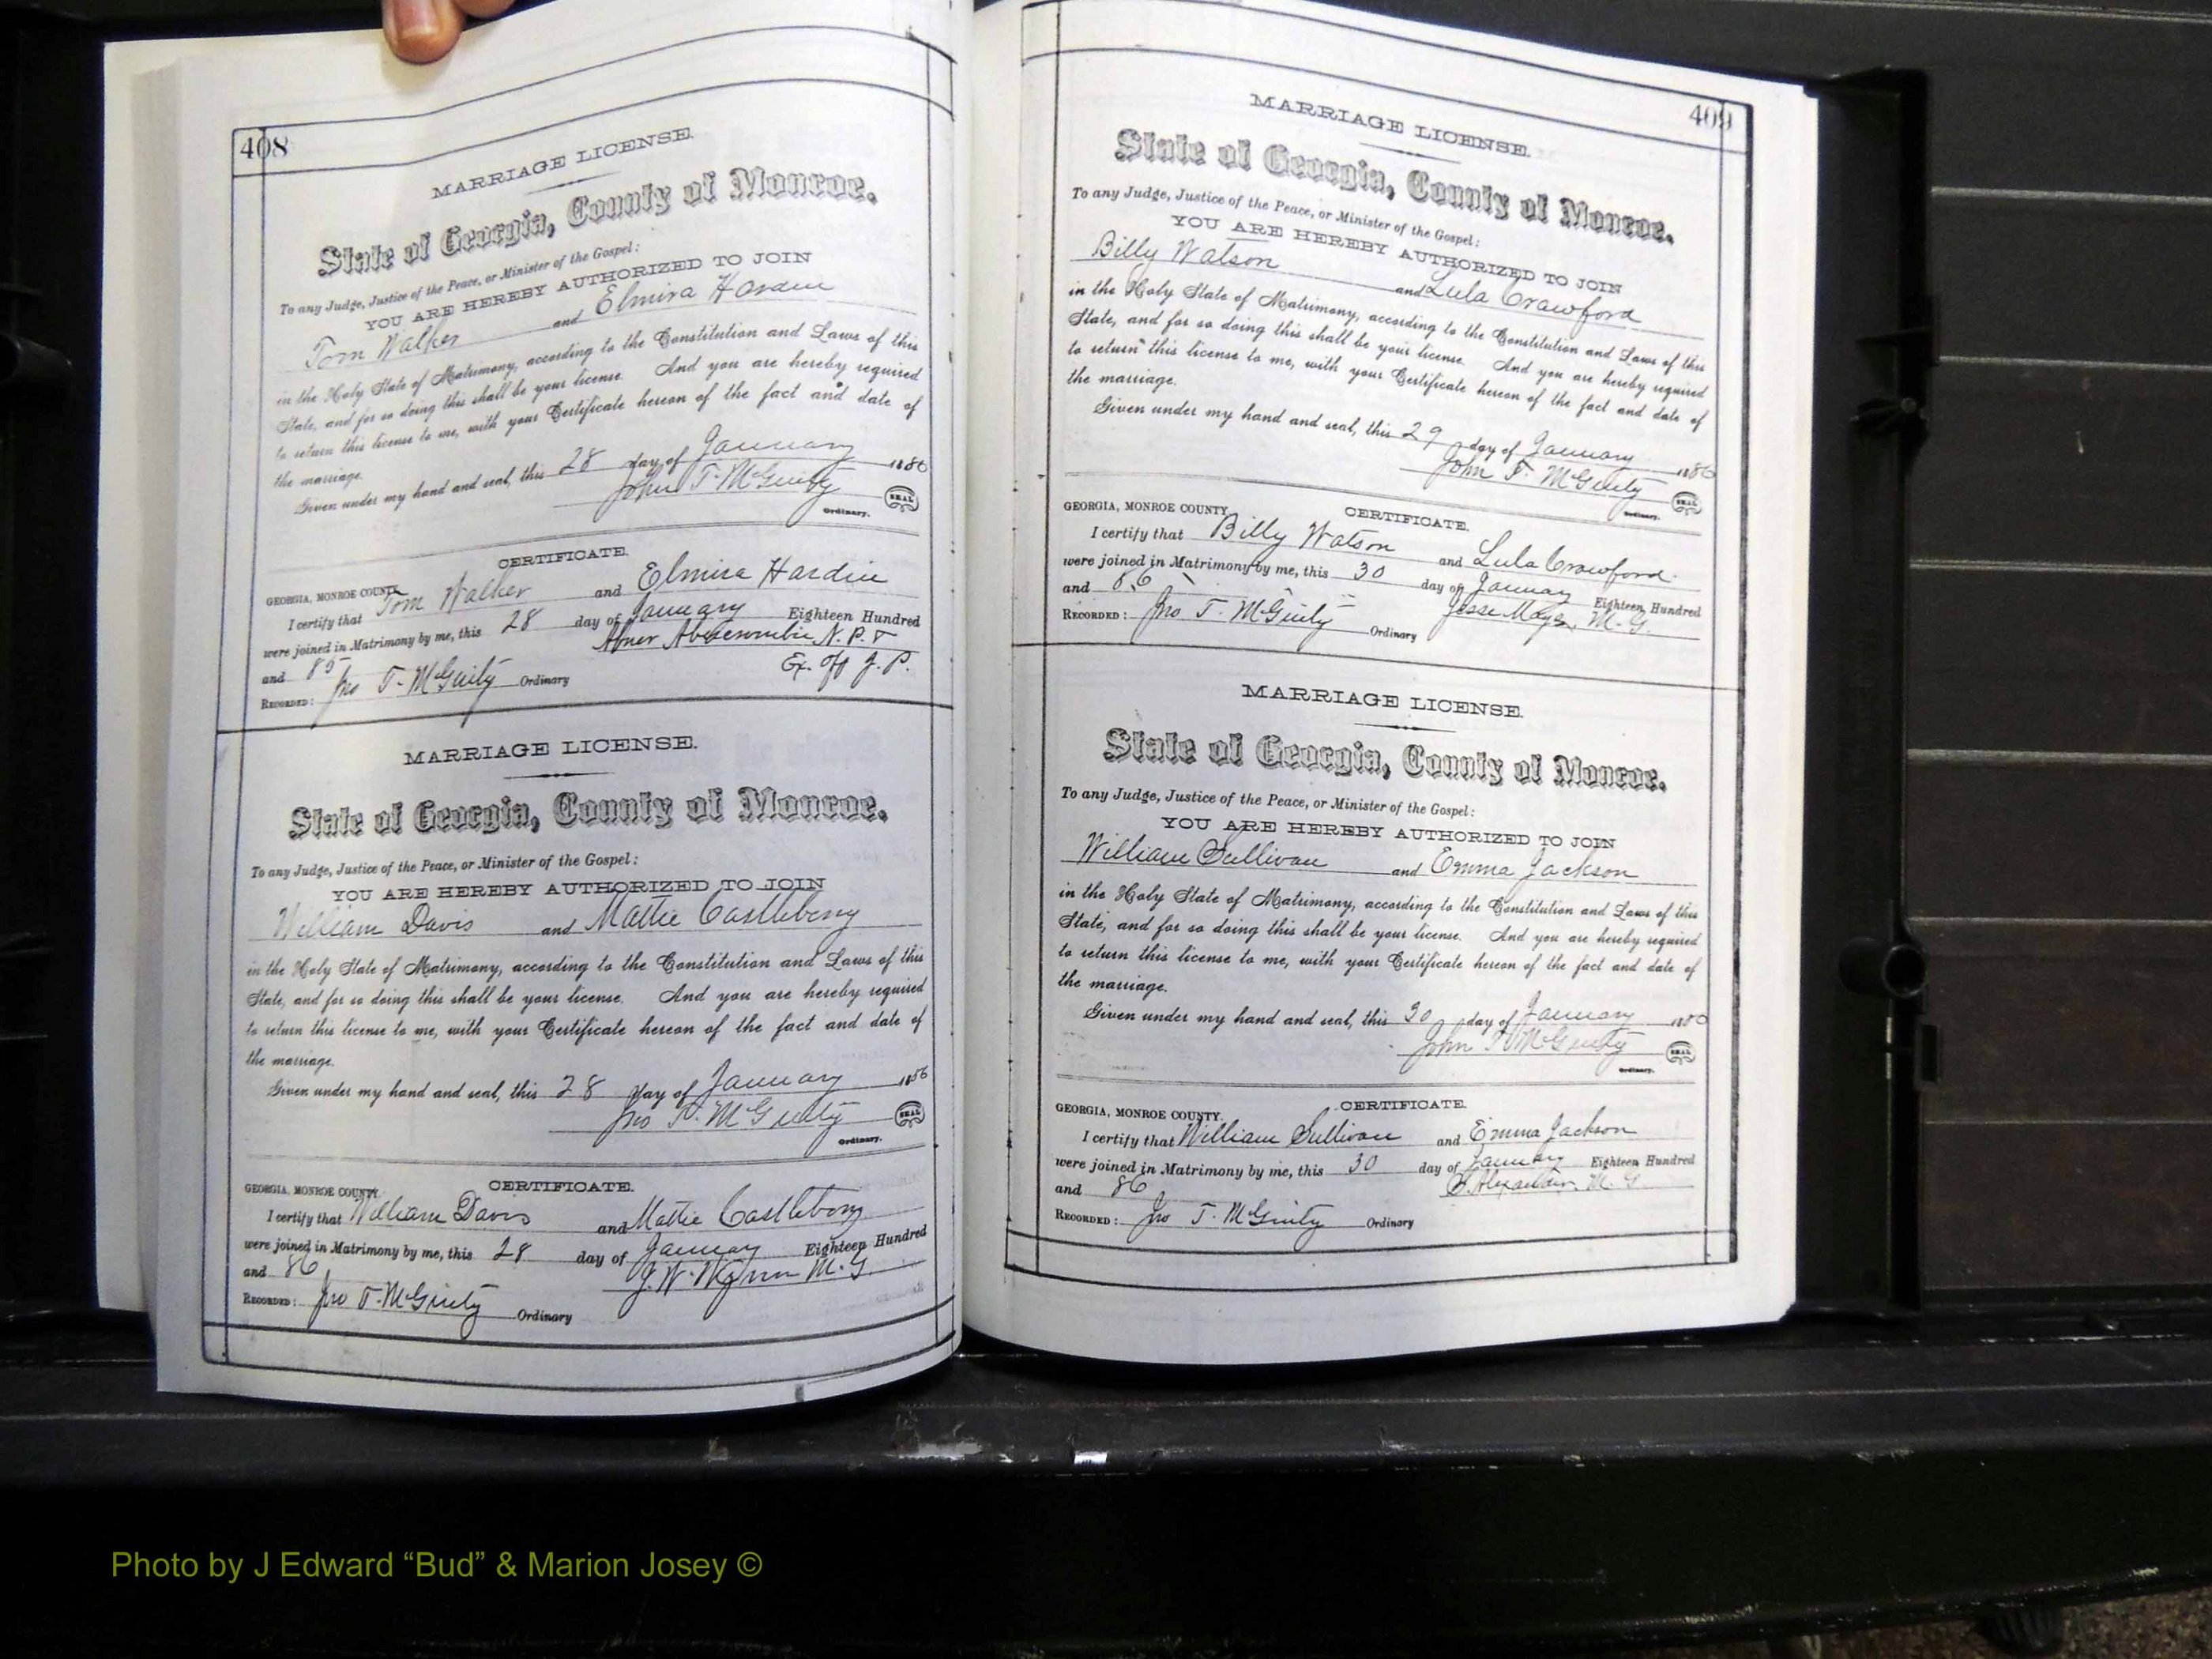 408
MARRIAGE LICENSE.
State of Georgia, County of Monroe.
To any Judge, Justice of the Peace, or Minister of the Gospel:
YOU ARE HEREBY AUTHORIZED TO JOIN
Tom Walker and Elmira Hardin
in the Holy State of Matrimony, according to the Constitution and Laws of this
State, and for so doing this shall be your license. And you are hereby required
to return this license to me, with your Certificate hereon of the fact and date of
the marriage.
Given under my hand and seal, this 28 day of January 1886
John T. McGinty SEAL
Ordinary.
CERTIFICATE.
GEORGIA, MONROE COUNTY.
I certify that Tom Walker and Elmira Hardin
were joined in Matrimony by me, this 28 day of January Eighteen Hundred
and 85 Abner Abercrombie N. P. &
Ex. off J. P.
RECORDED: Jno T. McGinty Ordinary
MARRIAGE LICENSE.
State of Georgia, County of Monroe.
To any Judge, Justice of the Peace, or Minister of the Gospel:
YOU ARE HEREBY AUTHORIZED TO JOIN
William Davis and Mattie Castleberry
in the Holy State of Matrimony, according to the Constitution and Laws of this
State, and for so doing this shall be your license. And you are hereby required
to return this license to me, with your Certificate hereon of the fact and date of
the marriage.
Given under my hand and seal, this 28 day of January 1886
Jno T. McGinty SEAL
Ordinary.
CERTIFICATE.
GEORGIA, MONROE COUNTY.
I certify that William Davis and Mattie Castleberry
were joined in Matrimony by me, this 28 day of January Eighteen Hundred
and 86 J. W. Wynn M. G.
RECORDED: Jno T. McGinty Ordinary
409
MARRIAGE LICENSE.
State of Georgia, County of Monroe.
To any Judge, Justice of the Peace, or Minister of the Gospel:
YOU ARE HEREBY AUTHORIZED TO JOIN
Billy Watson and Lula Crawford
in the Holy State of Matrimony, according to the Constitution and Laws of this
State, and for so doing this shall be your license. And you are hereby required
to return this license to me, with your Certificate hereon of the fact and date of
the marriage.
Given under my hand and seal, this 29 day of January 1886
John T. McGinty SEAL
Ordinary.
CERTIFICATE.
GEORGIA, MONROE COUNTY.
I certify that Billy Watson and Lula Crawford
were joined in Matrimony by me, this 30 day of January Eighteen Hundred
and 86 Jesse M. G.
RECORDED: Jno T. McGinty Ordinary
MARRIAGE LICENSE.
State of Georgia, County of Monroe.
To any Judge, Justice of the Peace, or Minister of the Gospel:
YOU ARE HEREBY AUTHORIZED TO JOIN
William Sullivan and Emma Jackson
in the Holy State of Matrimony, according to the Constitution and Laws of this
State, and for so doing this shall be your license. And you are hereby required
to return this license to me, with your Certificate hereon of the fact and date of
the marriage.
Given under my hand and seal, this 30 day of January 1886
John T. McGinty SEAL
Ordinary.
CERTIFICATE.
GEORGIA, MONROE COUNTY.
I certify that William Sullivan and Emma Jackson
were joined in Matrimony by me, this 30 day of January Eighteen Hundred
and 86 S. Alexander. M. G.
RECORDED: Jno T. McGinty Ordinary
Photo by J Edward “Bud” & Marion Josey ©